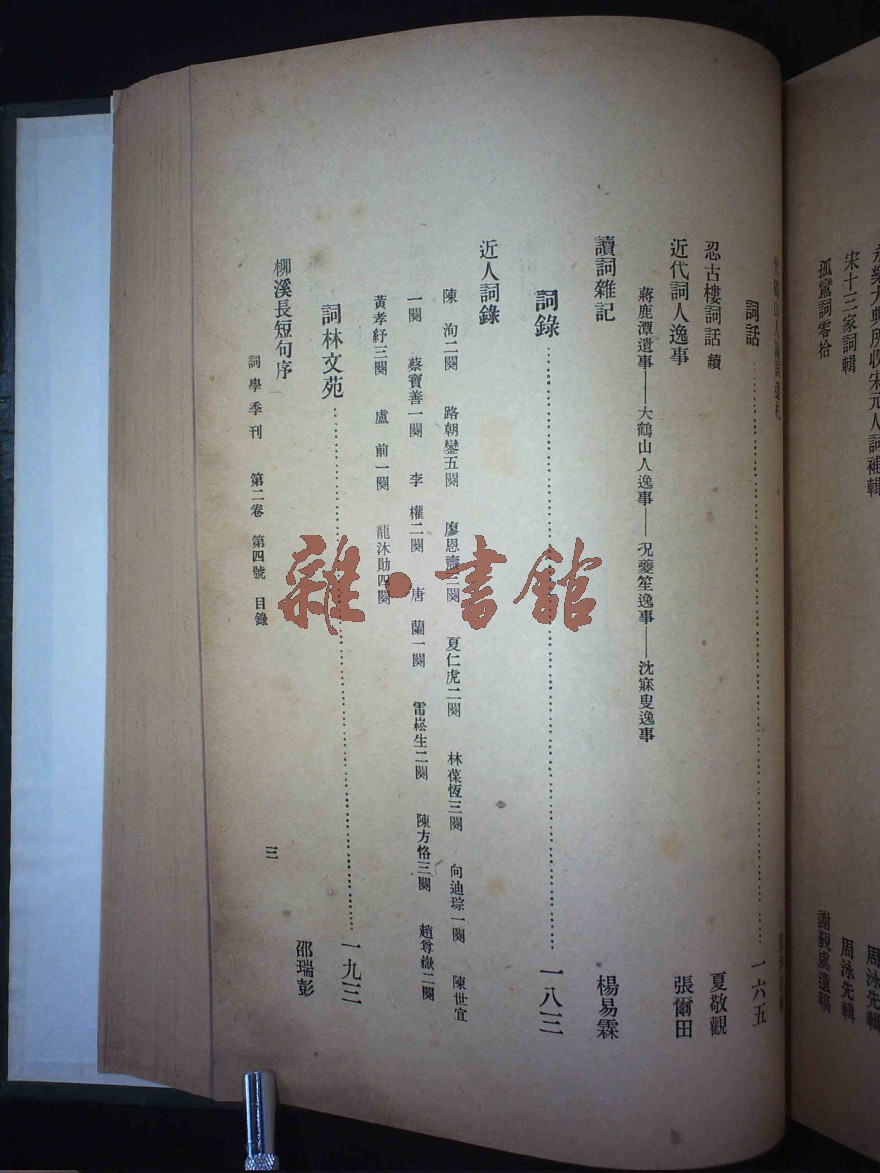 永樂大典所收宋元人詞補輯
周泳先輯
宋十三家詞輯
周泳先輯
孤鸞詞零拾
謝覲虞遺稿
詞話
一六五
忍古樓詞話 續
夏敬觀
近代詞人逸事
張爾田
蔣鹿潭遺事——大鶴山人逸事——況夔笙逸事——沈寐叟逸事
讀詞雜記
楊易霖
詞錄
一八三
近人詞錄
陳 洵二闋 路朝鑾五闋 廖恩燾三闋 夏仁虎二闋 林葆恆三闋 向迪琮一闋 陳世宜
一闋 蔡寶善一闋 李 權二闋 唐 蘭一闋 雷崧生二闋 陳方恪三闋 趙尊嶽二闋
黃孝紓三闋 盧 前一闋 龍沐勛四闋
詞林文苑
一九三
柳溪長短句序
邵瑞彭
詞學季刊 第二卷 第四號 目錄
三
雜·書館